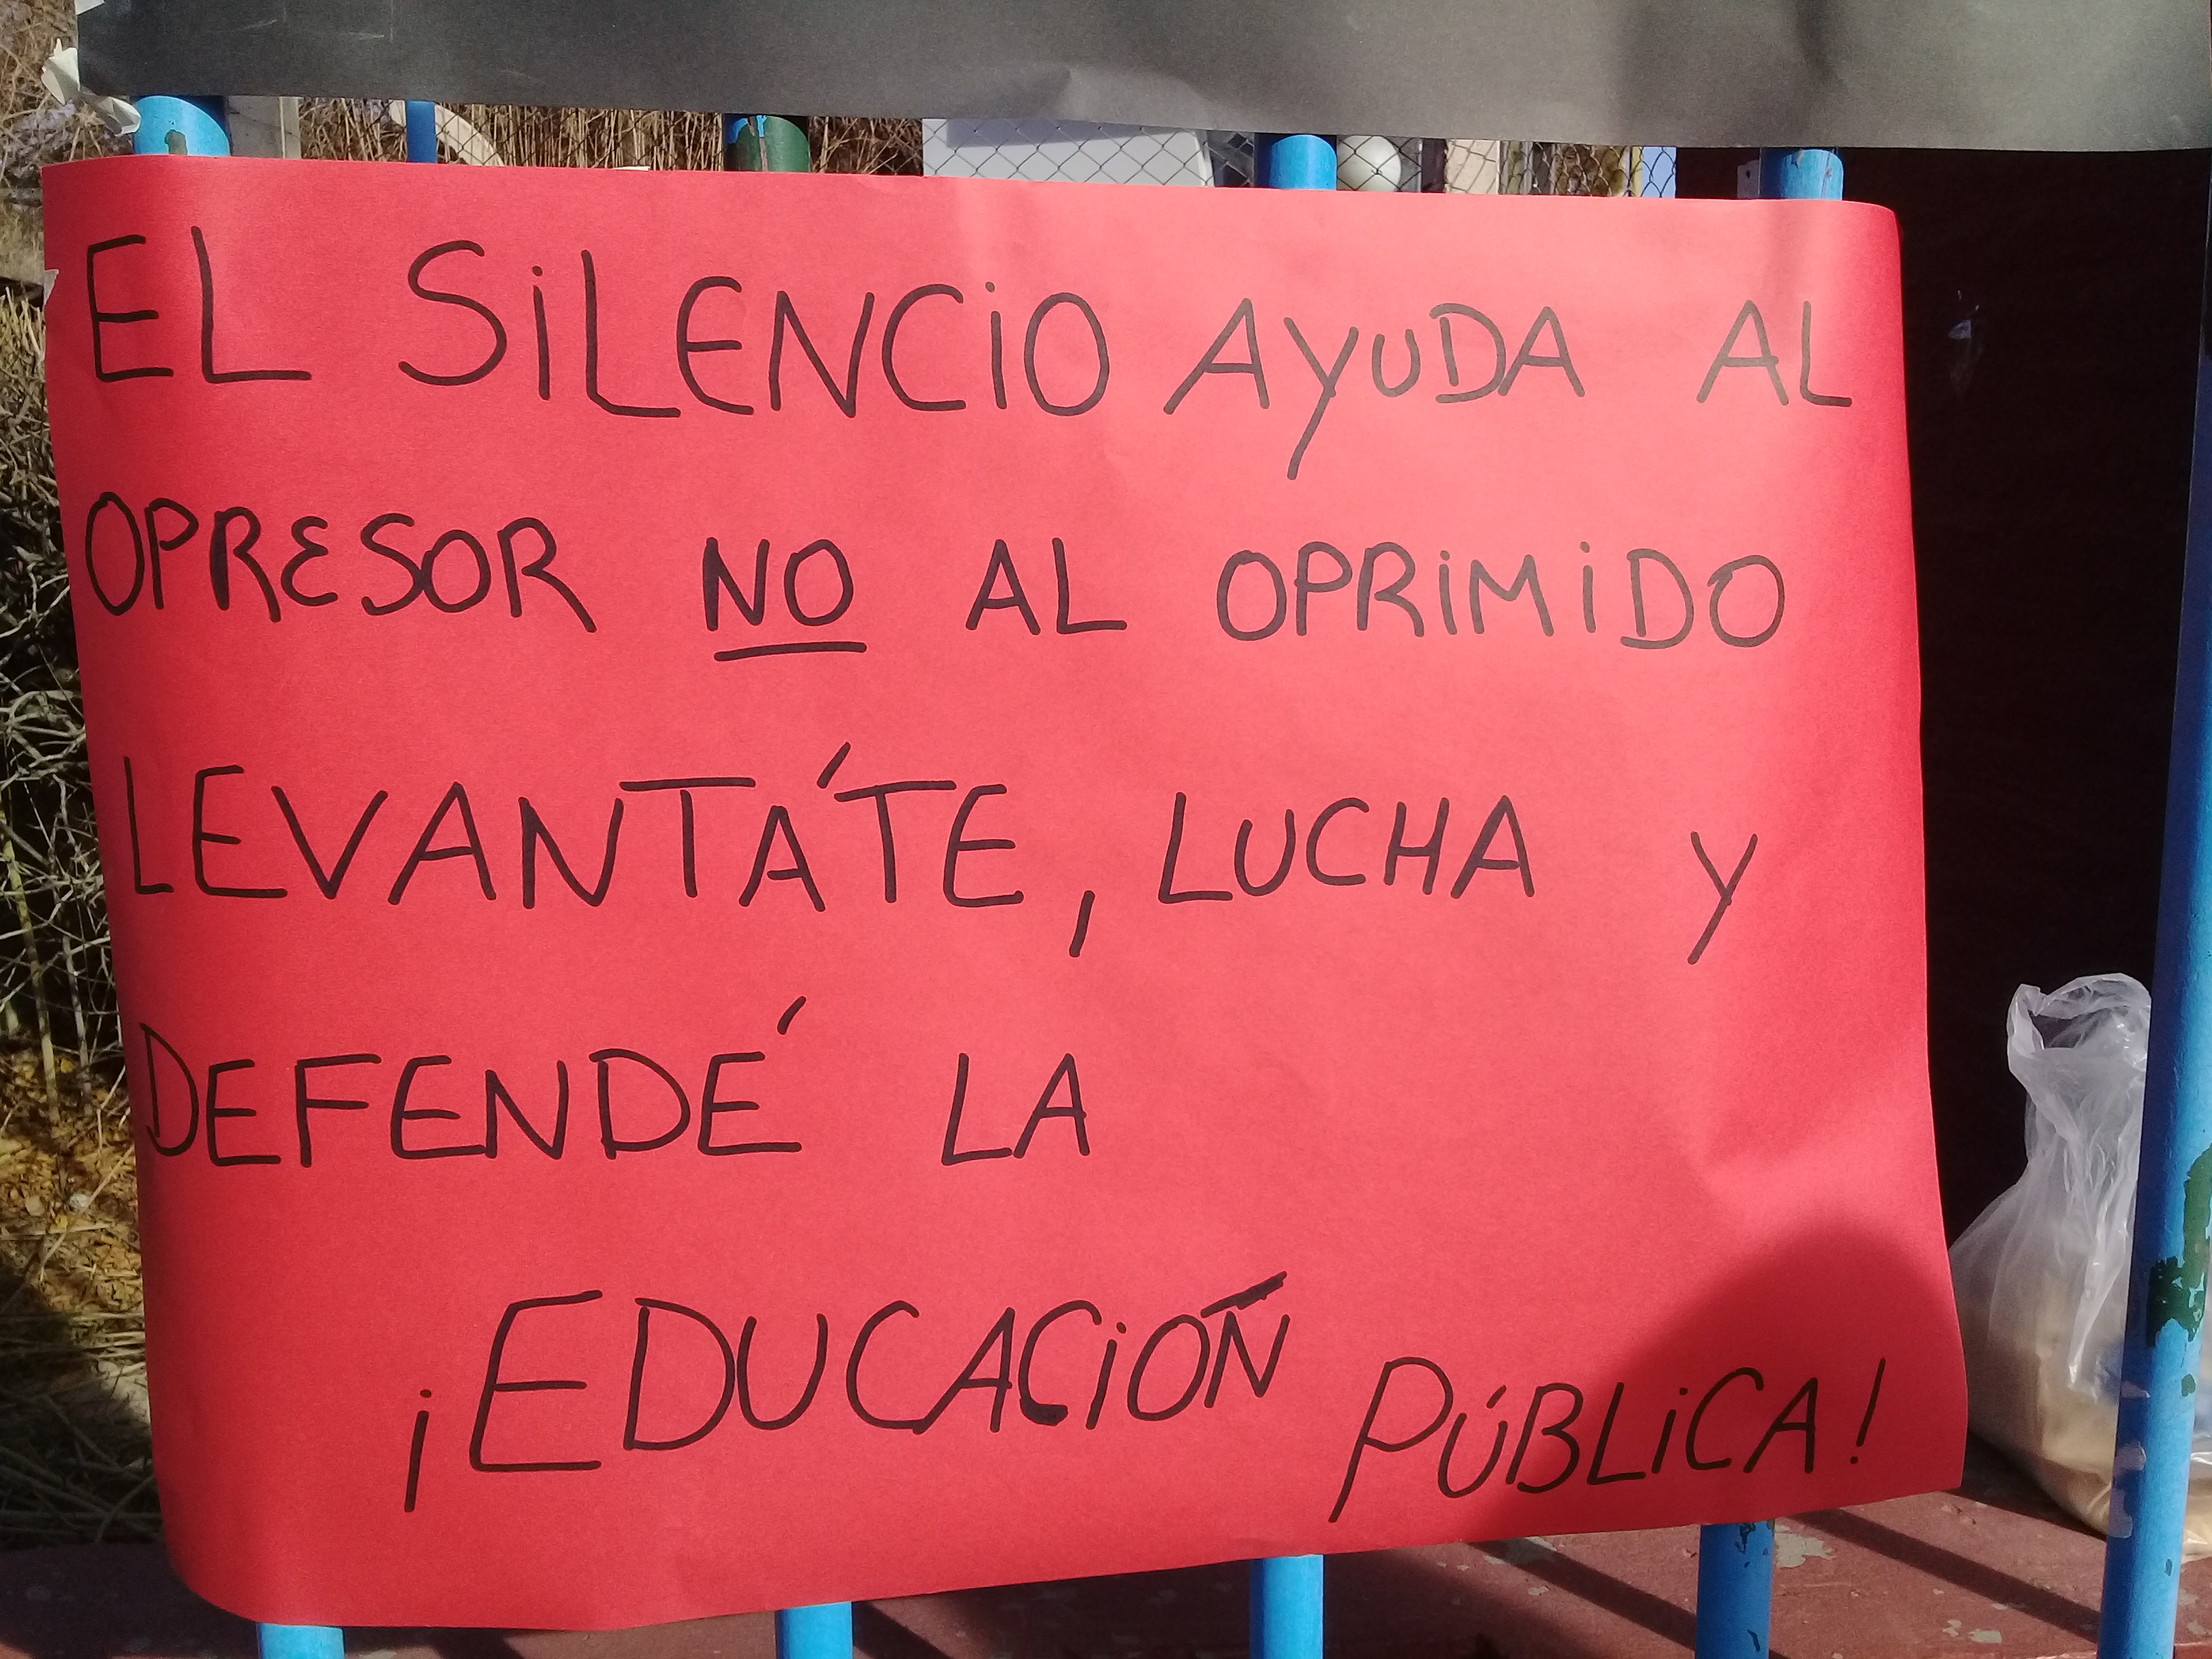 EL SiLENCiO AYUDA AL
OPRESOR NO AL OPRiMiDO
LEVANTÁTE, LUCHA Y
DEFENDÉ LA
¡EDUCACiÓN PÚBLiCA!